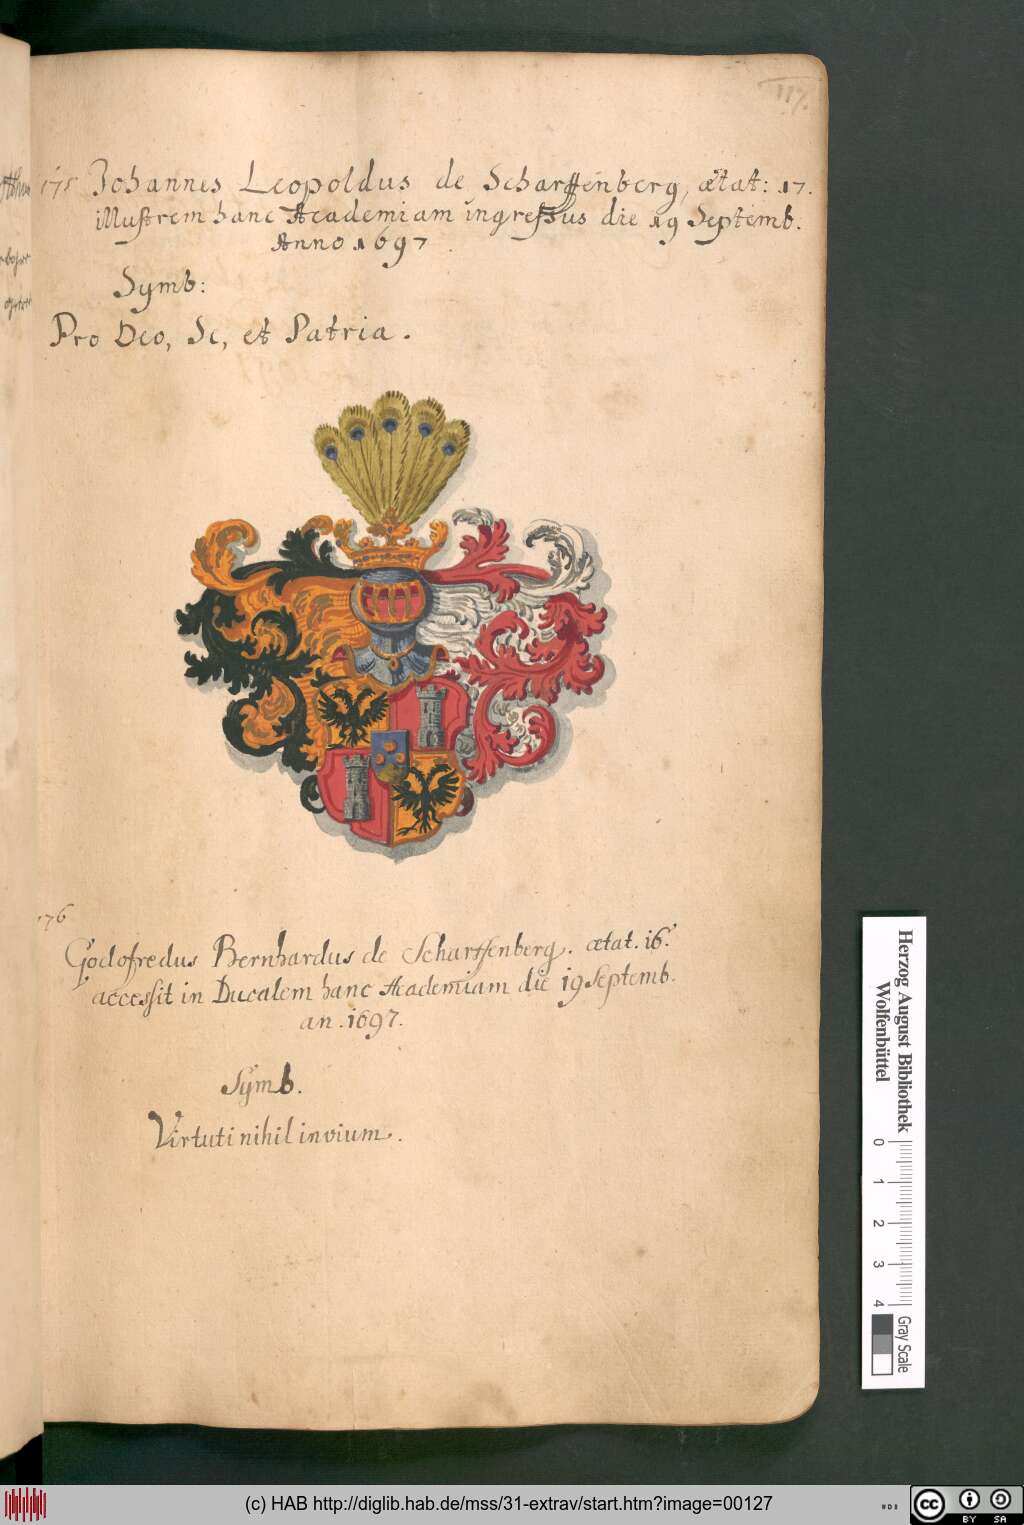 117.
175 Johannes Leopoldus de Scharffenberg, ætat: 17.
illustrem hanc Academiam ingressus die 19 Septemb.
Anno 1697
Symb:
Pro Deo, Se, et Patria.
176
Godofredus Bernhardus de Scharffenberg. ætat. 16.
accessit in Ducalem hanc Academiam die 19 Septemb.
an. 1697.
Symb.
Virtuti nihil invium.
Herzog August Bibliothek
Wolfenbüttel
0 1 2 3 4
Gray Scale
(c) HAB http://diglib.hab.de/mss/31-extrav/start.htm?image=00127
cc BY SA